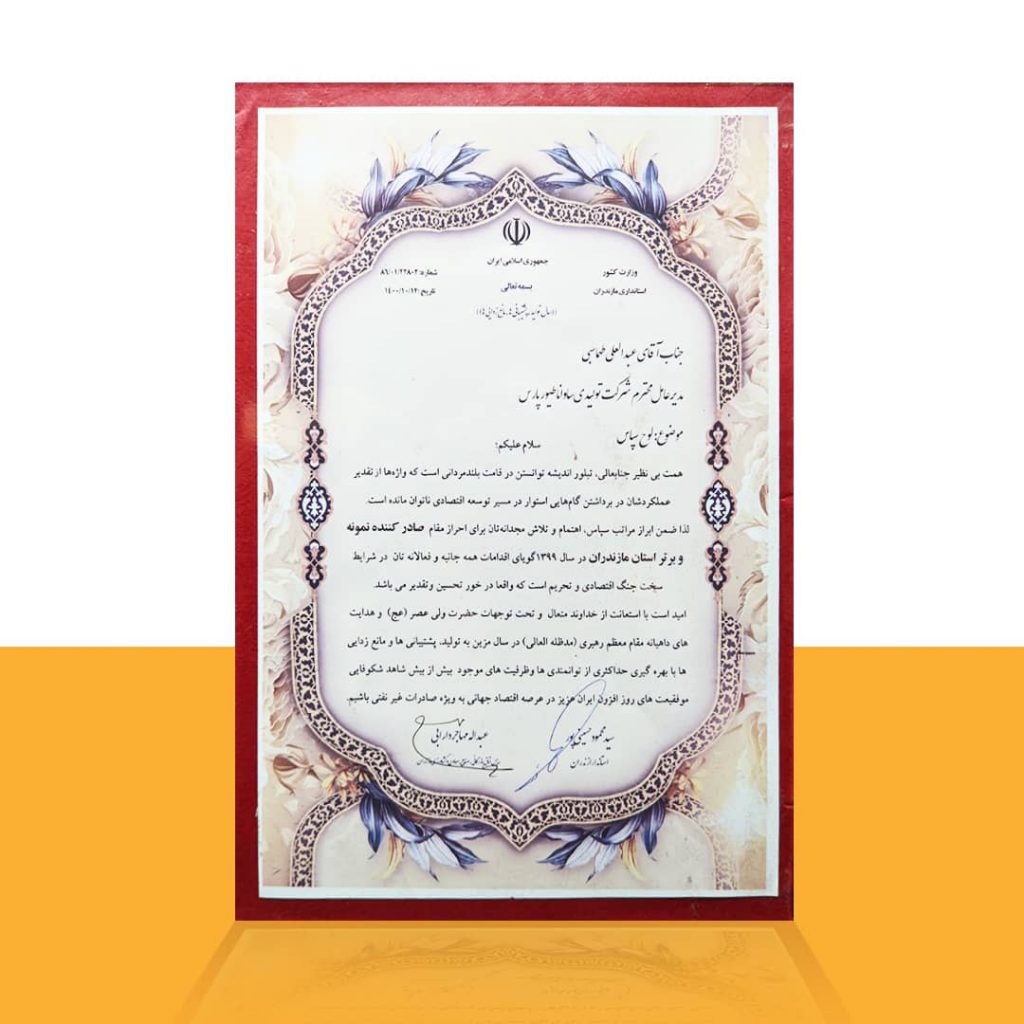 جمهوری اسلامی ایران
وزارت کشور
استانداری مازندران
بسمه تعالی
شماره: ۸۶/۰۱/۲۲۸۰۲
تاریخ: ۱۴۰۰/۱۰/۱۲
((سال تولید، پشتیبانی ها، مانع زدایی ها))
جناب آقای عبدالعلی طهماسبی
مدیر عامل محترم شرکت تولیدی ساوانا طیور پارس
موضوع: لوح سپاس
سلام علیکم؛
همت بی نظیر جنابعالی، تبلور اندیشه توانستن در قامت بلندمردانی است که واژه‌ها از تقدیر
عملکردشان در برداشتن گام‌هایی استوار در مسیر توسعه اقتصادی ناتوان مانده است.
لذا ضمن ابراز مراتب سپاس، اهتمام و تلاش مجدانه‌تان برای احراز مقام صادر کننده نمونه
و برتر استان مازندران در سال ۱۳۹۹گویای اقدامات همه جانبه و فعالانه تان در شرایط
سخت جنگ اقتصادی و تحریم است که واقعا در خور تحسین وتقدیر می باشد.
امید است با استعانت از خداوند متعال و تحت توجهات حضرت ولی عصر (عج) و هدایت
های داهیانه مقام معظم رهبری (مدظله العالی) در سال مزین به تولید، پشتیبانی ها و مانع زدایی
ها با بهره گیری حداکثری از توانمندی ها وظرفیت های موجود بیش از پیش شاهد شکوفایی
موفقیت های روز افزون ایران عزیز در عرصه اقتصاد جهانی به ویژه صادرات غیر نفتی باشیم.
سید محمود حسینی پور
استاندار مازندران
عبداله مهاجر دارابی